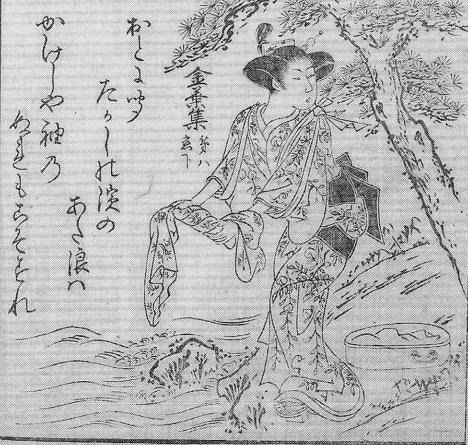 金葉集
恋下
おとに聞
たかしの濱の
あた浪ハ
かけしや袖乃
ぬれもこそすれ